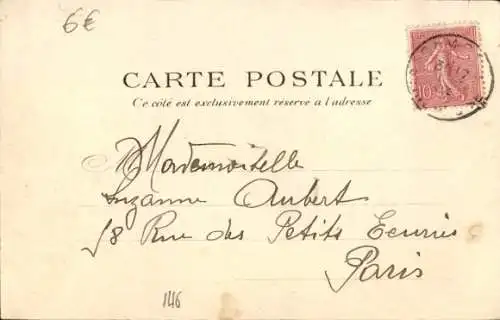 6€
CARTE POSTALE
Ce côté est exclusivement réservé à l'adresse
10
Mademoiselle
Suzanne Aubert
58 Rue des Petits Ecuries
Paris
146